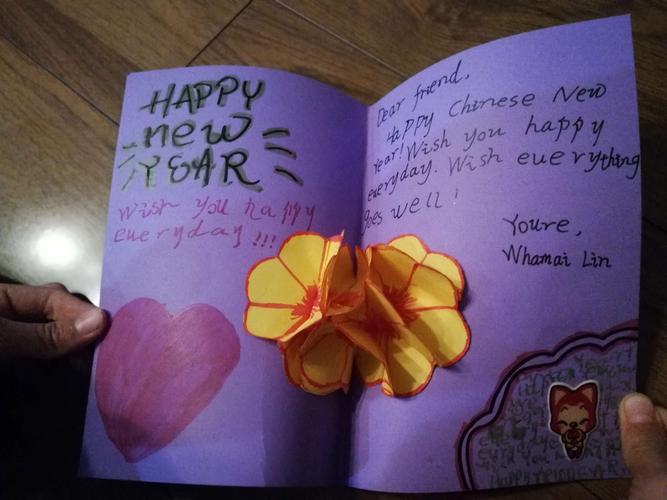 HAPPY
new
YEAR
Wish you happy
everyday !!!
Dear friend,
Happy Chinese New
Year! Wish you happy
everyday. Wish everything
goes well!
Youre,
Whamai Lin
HAPPY NEW YEAR